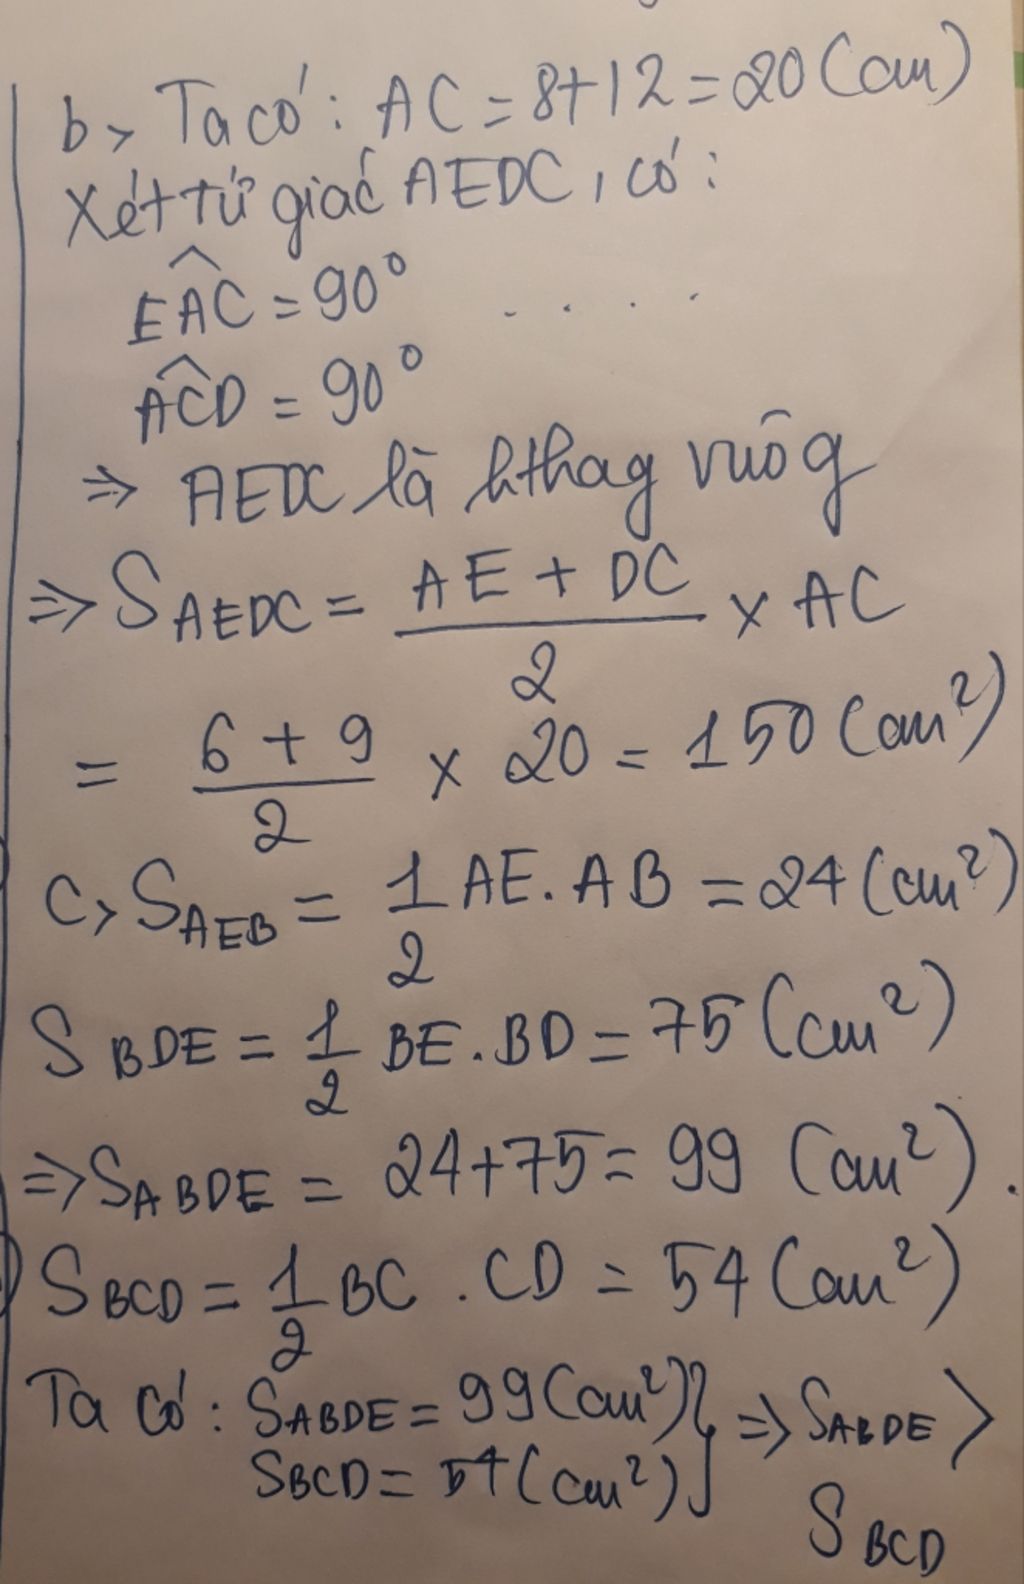 b, Ta có: AC = 8+12 = 20 (cm)
Xét tứ giác AEDC, có:
EAC = 90°
ACD = 90°
⇒ AEDC là hthag vuôg
⇒ S AEDC = (AE + DC)/2 x AC
= (6 + 9)/2 x 20 = 150 (cm²)
C, S AEB = 1/2 AE . AB = 24 (cm²)
S BDE = 1/2 BE . BD = 75 (cm²)
⇒ S ABDE = 24+75 = 99 (cm²).
S BCD = 1/2 BC . CD = 54 (cm²)
Ta có: S ABDE = 99 (cm²) } ⇒ S ABDE >
S BCD = 54 (cm²)
S BCD